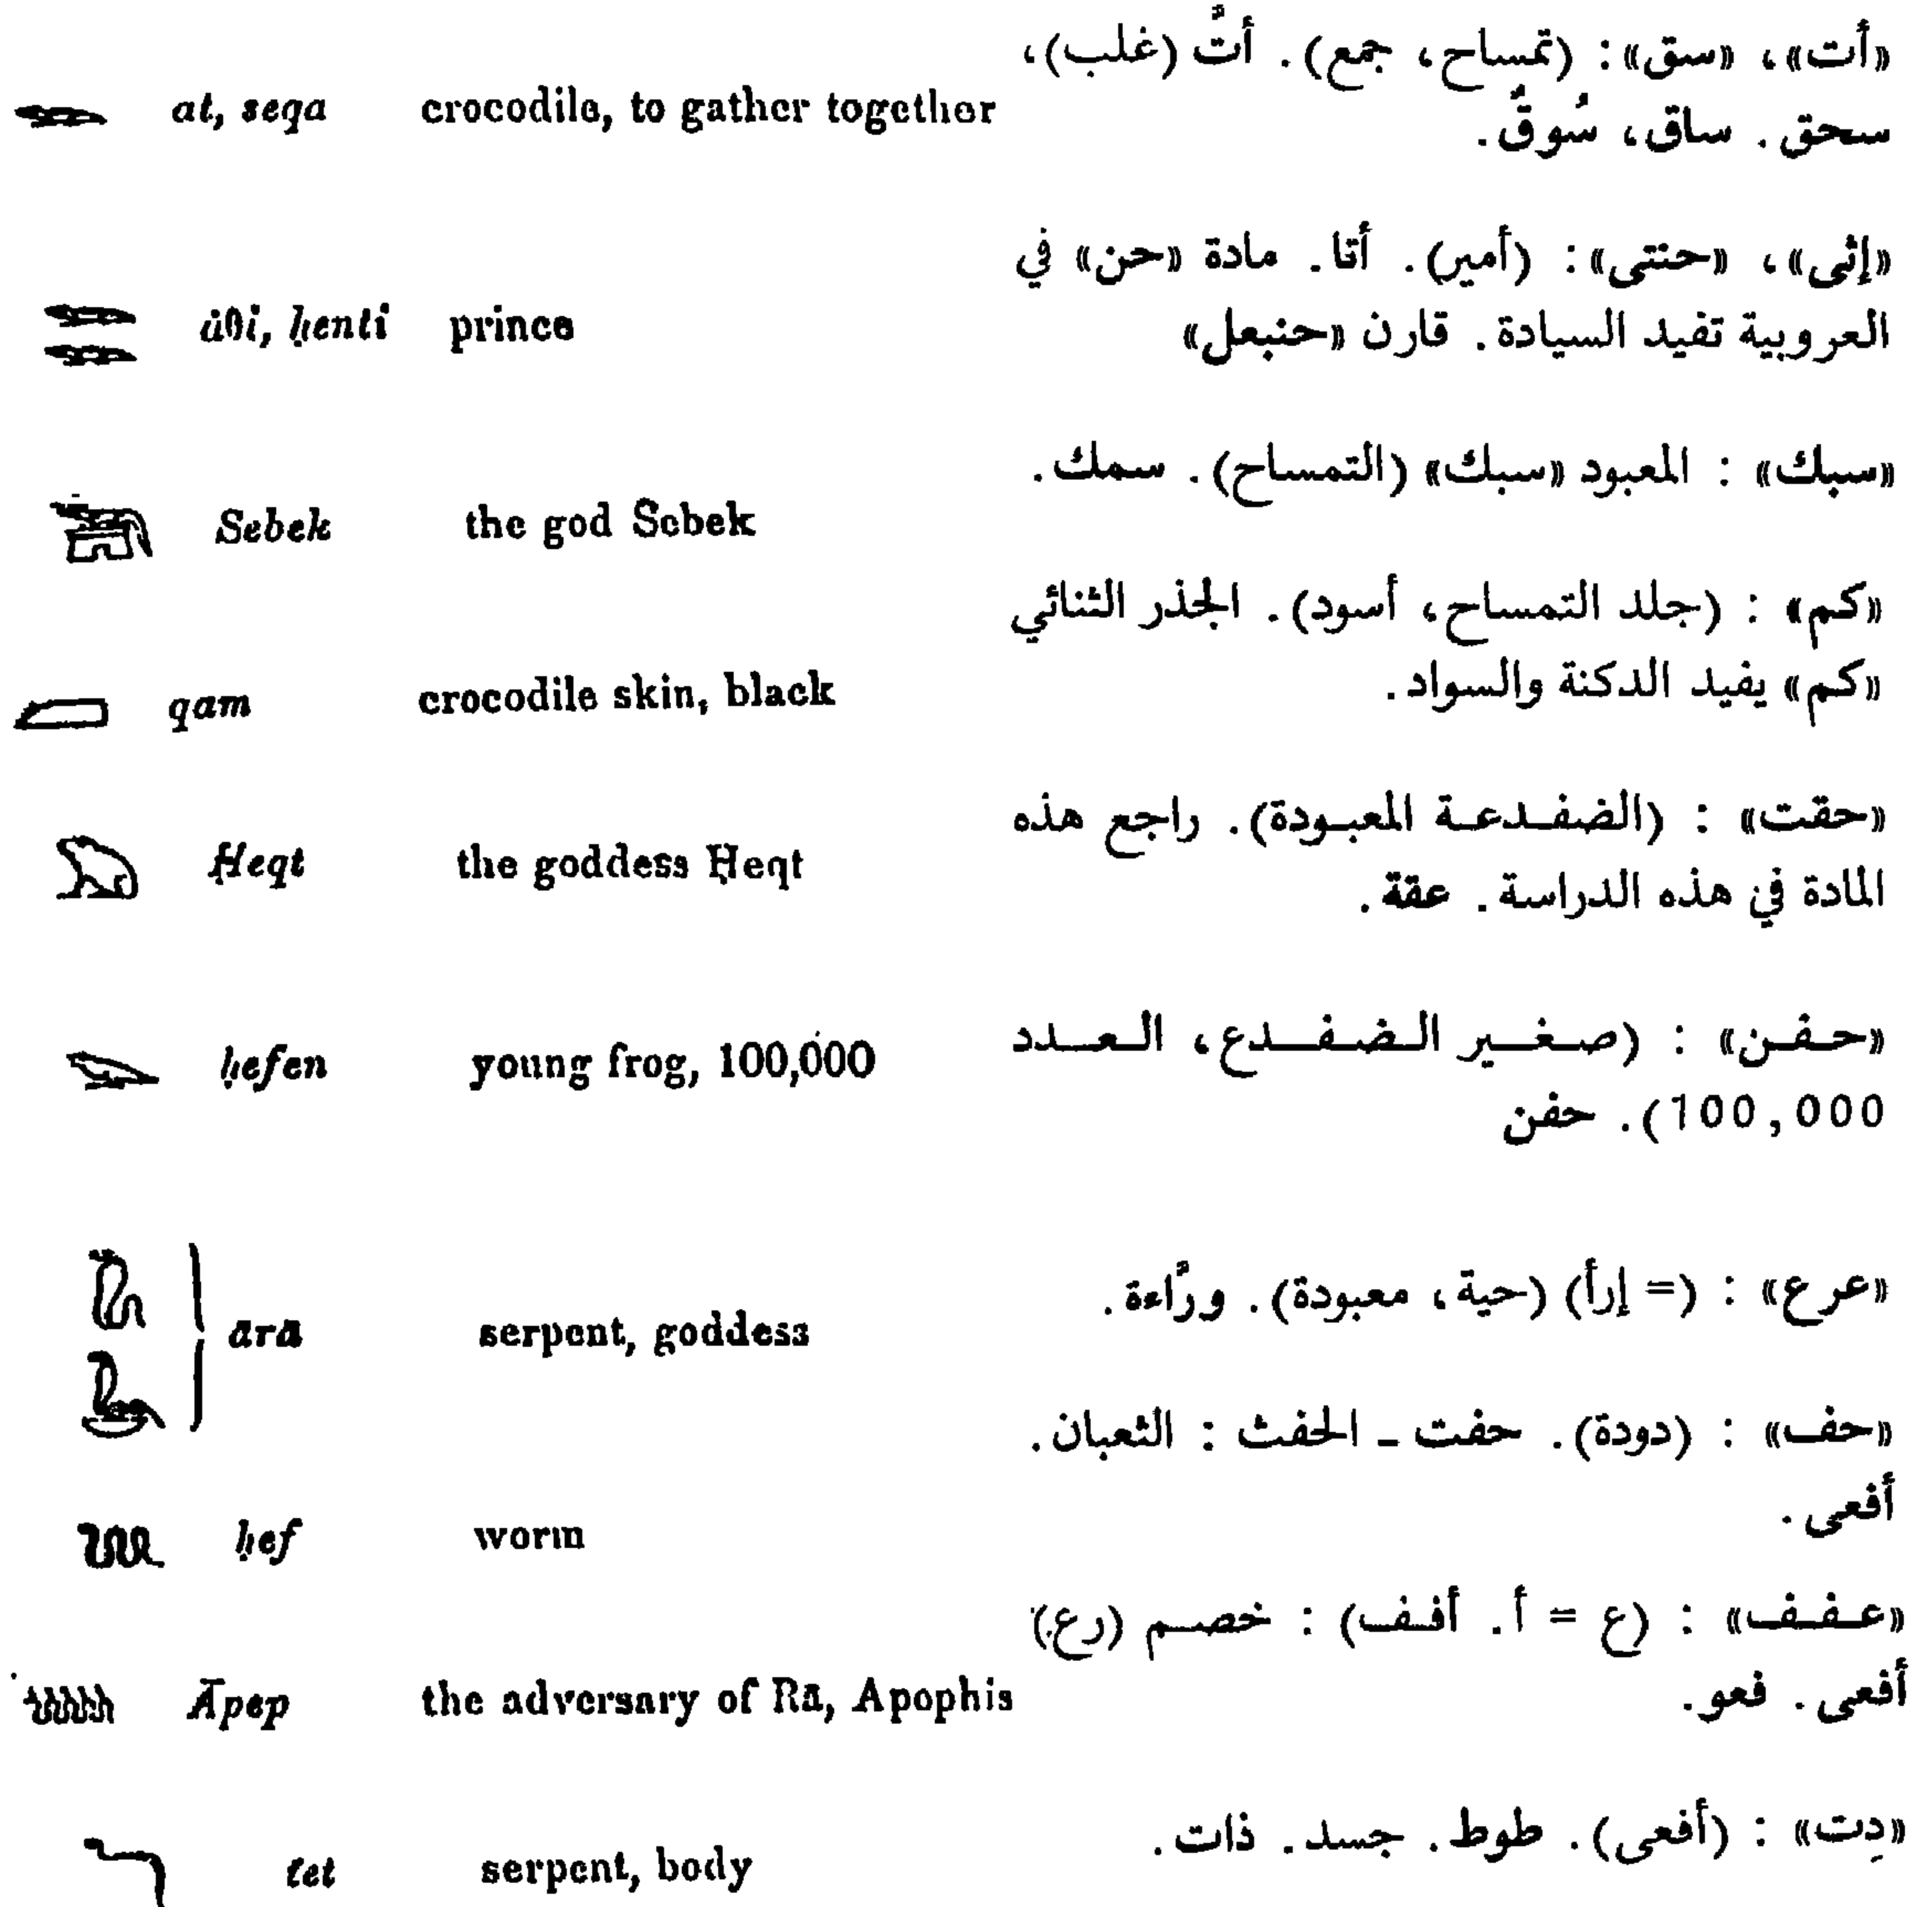 at, seqa crocodile, to gather together
«أت»، «سق»: (تمساح، جمع). أتَّ (غلب)،
سحق. ساق، سُوقٌ.
âθi, ḥenti prince
«إثى»، «حنتى»: (أمير). أتا. مادة «حن» في
العروبية تفيد السيادة. قارن «حنبعل»
Sebek the god Sebek
«سبك» : المعبود «سبك» (التمساح). سمك.
qam crocodile skin, black
«كم» : (جلد التمساح، أسود). الجذر الثنائي
«كم» يفيد الدكنة والسواد.
Ḥeqt the goddess Ḥeqt
«حقت» : (الضفدعة المعبودة). راجع هذه
المادة في هذه الدراسة. عقة.
ḥefen young frog, 100,000
«حفن» : (صغير الضفدع، العدد
100,000). حفن
ārā serpent, goddess
«عرع» : (= إرأ) (حية، معبودة). ورَّاءة.
ḥef worm
«حف» : (دودة). حفت ـ الحفث : الثعبان.
أفعى.
Āpep the adversary of Rā, Apophis
«عفف» : (ع = أ. أفف) : خصم (رع)
أفعى. فعو.
tet serpent, body
«دِت» : (أفعى). طوط. جسد. ذات.